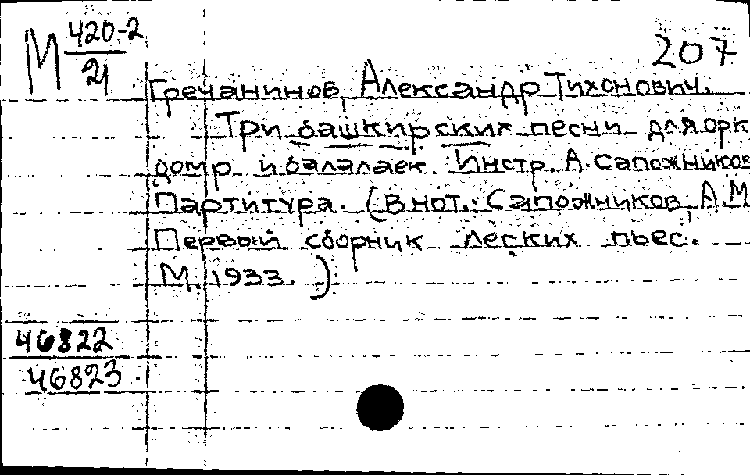 М 420-2
21
207
Гречанинов, Александр Тихонович.
Три башкирских песни для орк
домр и балалаек. Инстр. А. Сапожников
Партитура. (В нот.: Сапожников, А.М
Первый сборник легких пьес.
М. 1933.)
46822
46823